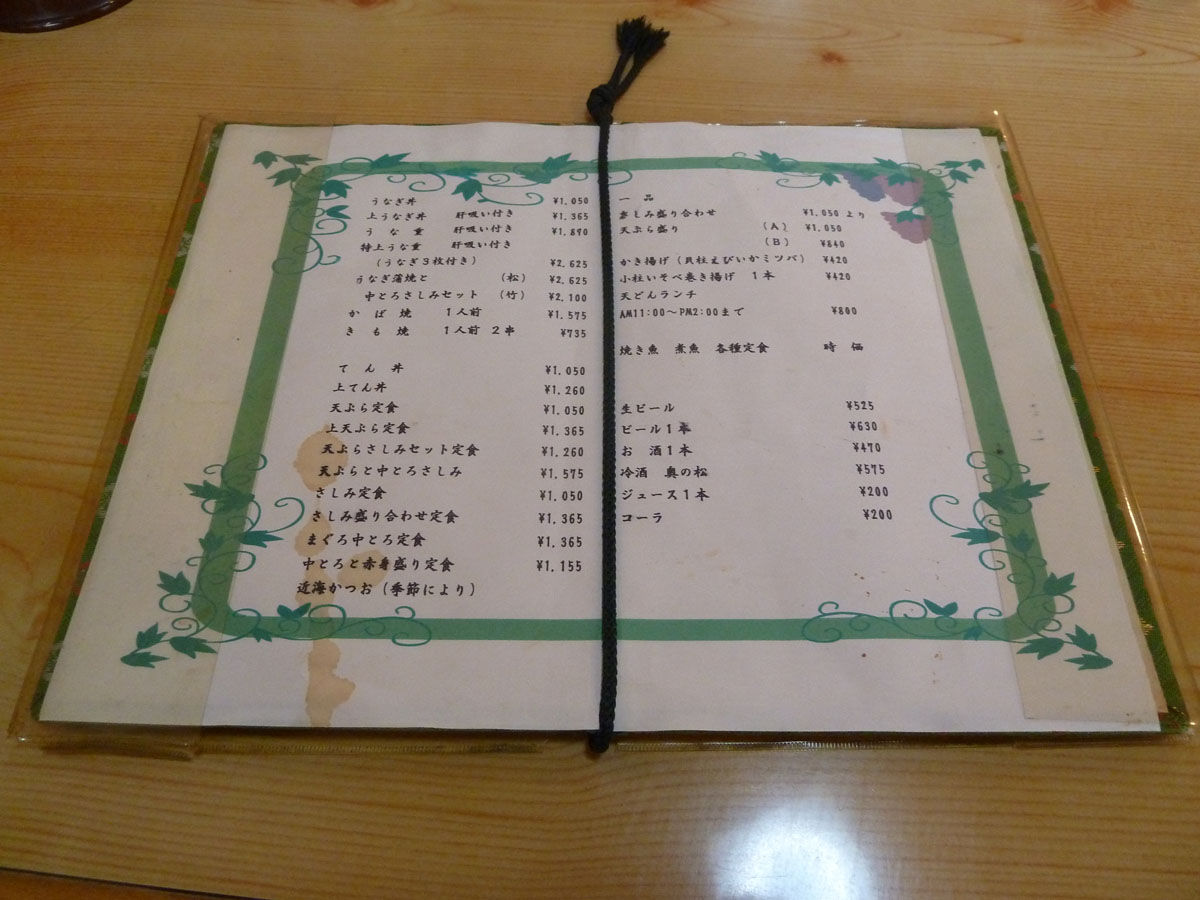 うなぎ丼 ¥1,050
上うなぎ丼 肝吸い付き ¥1,365
うな重 肝吸い付き ¥1,890
特上うな重 肝吸い付き
（うなぎ３枚付き） ¥2,625
うなぎ蒲焼と （松） ¥2,625
中とろさしみセット （竹） ¥2,100
かば焼 １人前 ¥1,575
きも焼 １人前 ２串 ¥735
てん丼 ¥1,050
上てん丼 ¥1,260
天ぷら定食 ¥1,050
上天ぷら定食 ¥1,365
天ぷらさしみセット定食 ¥1,260
天ぷらと中とろさしみ ¥1,575
さしみ定食 ¥1,050
さしみ盛り合わせ定食 ¥1,365
まぐろ中とろ定食 ¥1,365
中とろと赤身盛り定食 ¥1,155
近海かつお（季節により）
一品
さしみ盛り合わせ ¥1,050より
天ぷら盛り （Ａ） ¥1,050
（Ｂ） ¥840
かき揚げ（貝柱えびいかミツバ） ¥420
小柱いそべ巻き揚げ １本 ¥420
天どんランチ
AM11:00〜PM2:00まで ¥800
焼き魚 煮魚 各種定食 時価
生ビール ¥525
ビール１本 ¥630
お酒１本 ¥470
冷酒 奥の松 ¥575
ジュース１本 ¥200
コーラ ¥200